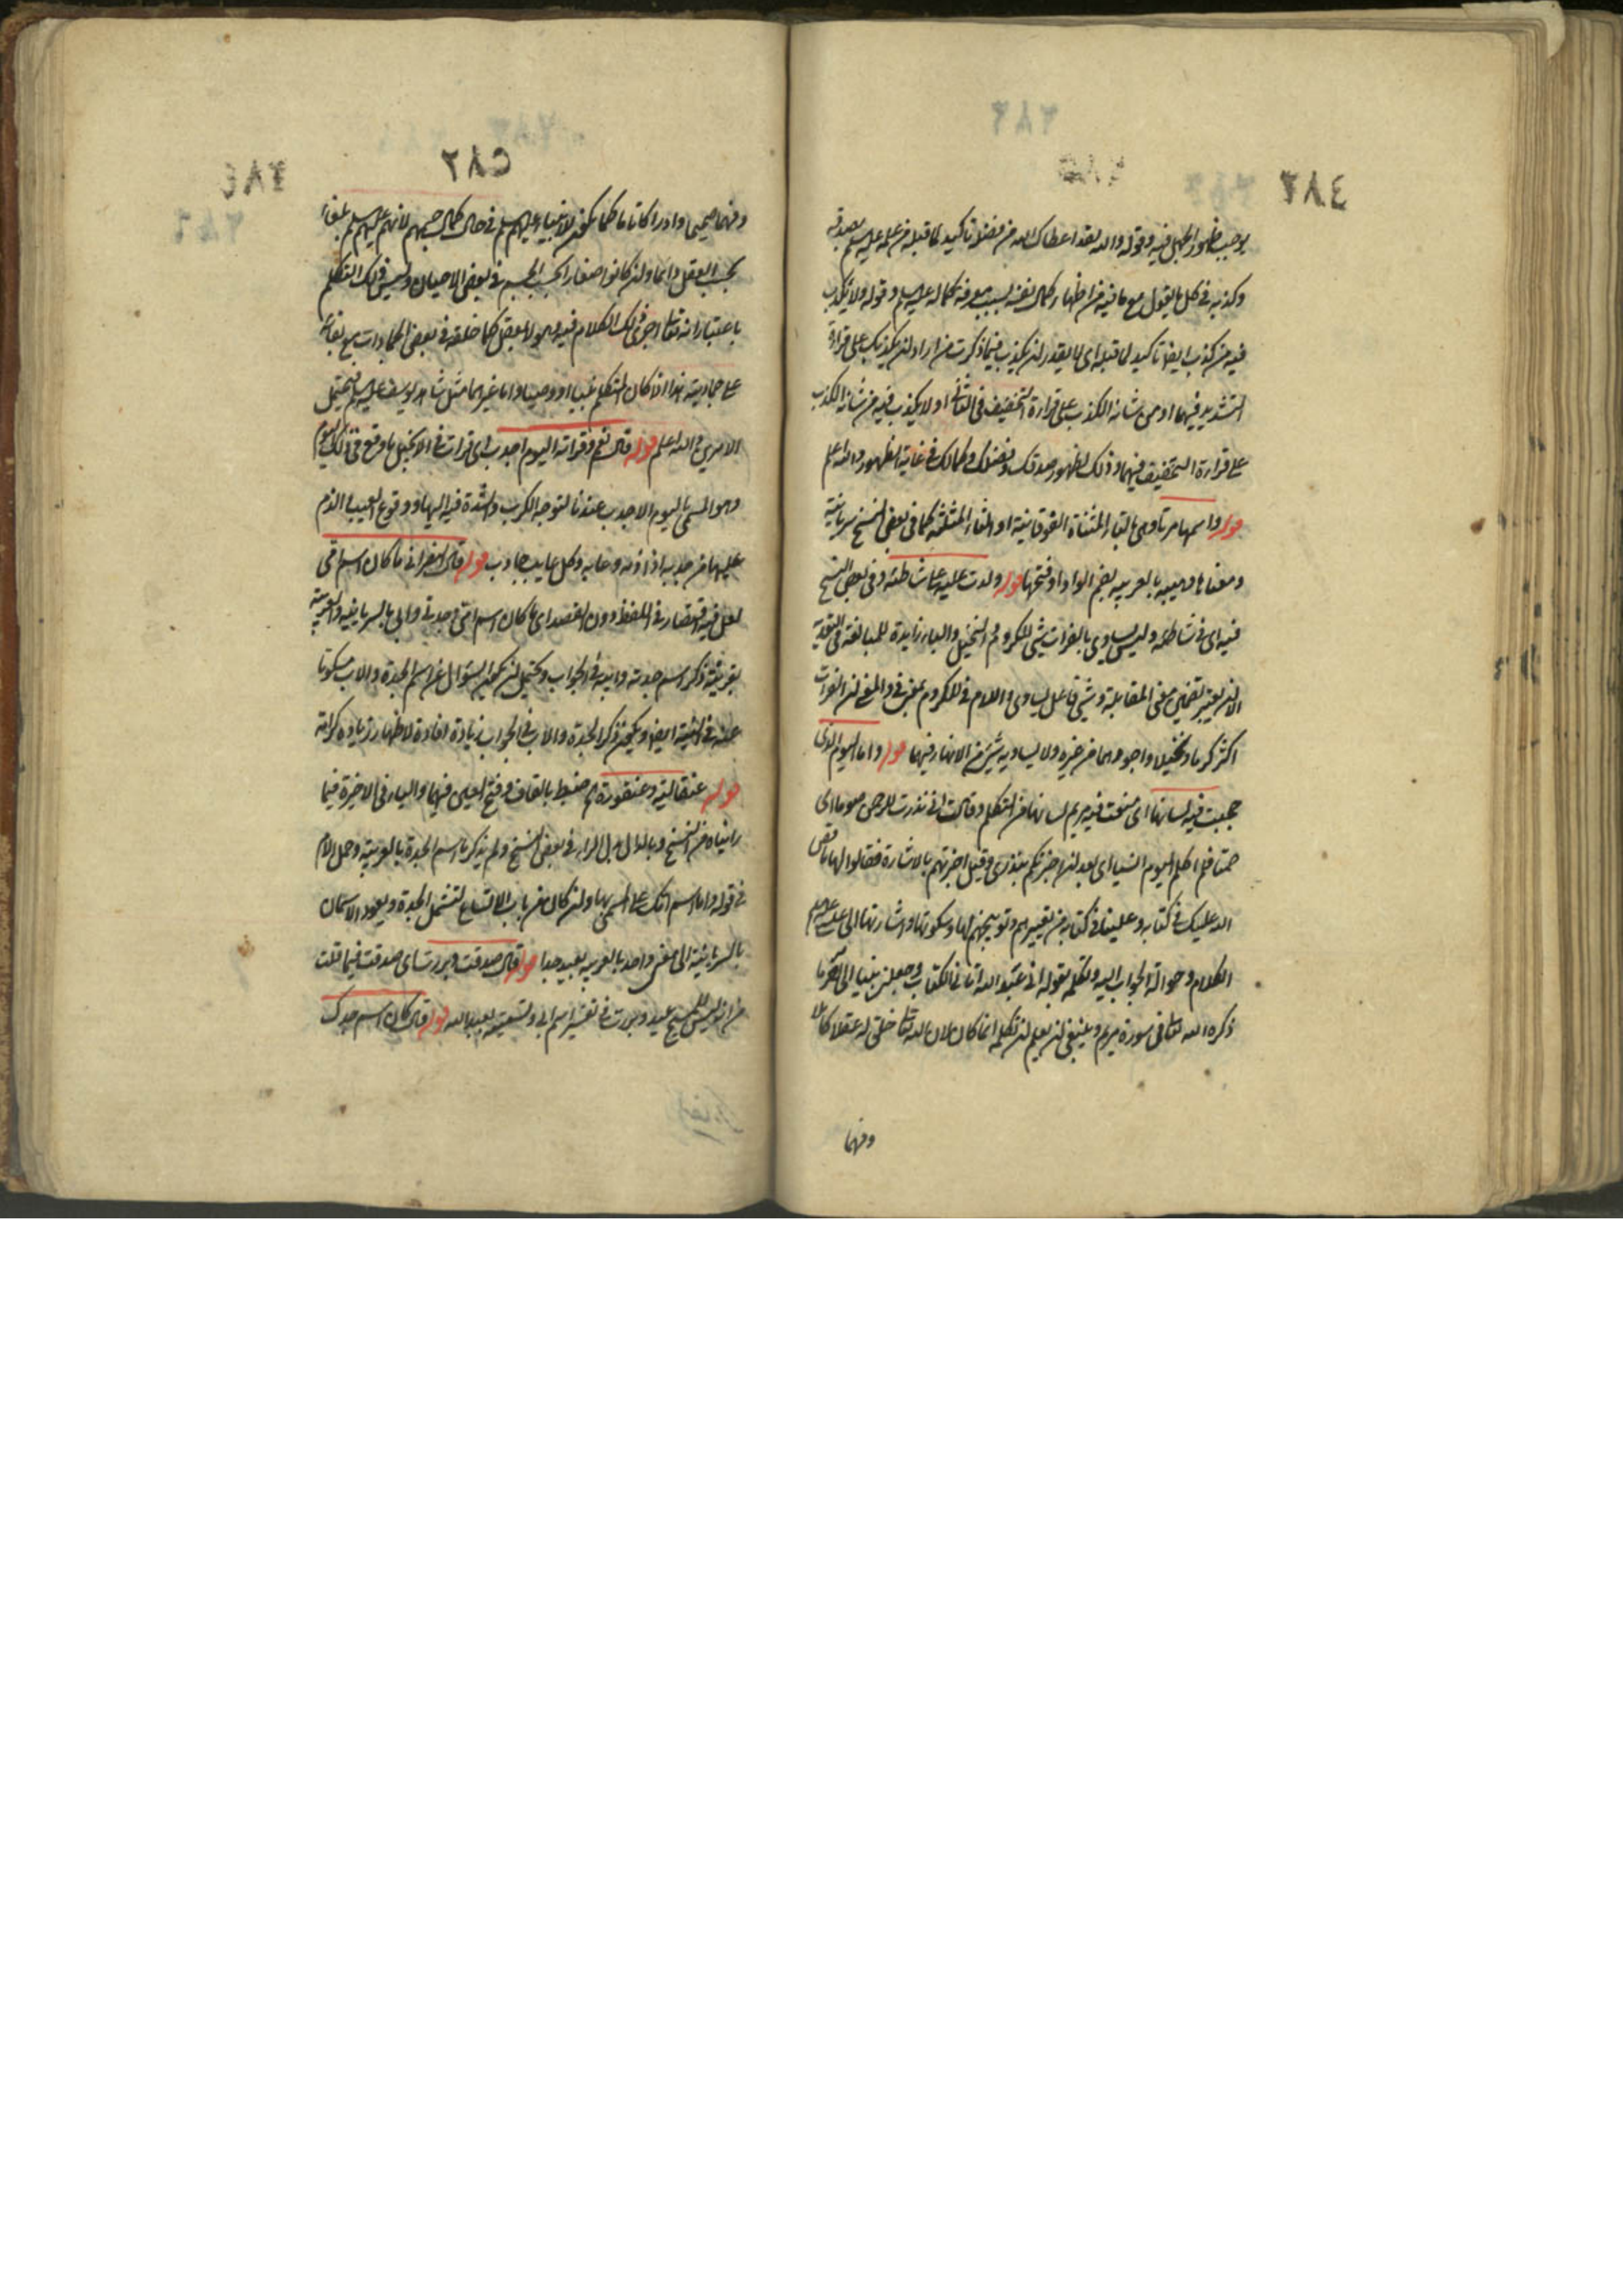 ٢٨٤
يوجب ظهور الجهل فيه وقوله والله لقد اعطاك الله من فضله تاكيد لما قبله من علمه عليه السلم بصدقه
وكذبه في كل ما يقول مع ما فيه من اظهار كمال نفسه بسبب معرفة كماله عليه السلم وقوله ولا يكذب
فيه من كذب ايضا تاكيد لما قبله اى لا يقدر ان يكذب فيما ذكرت من اراد ان يكذبك على قراءة
التشديد فيهما او من شانه الكذب على قراءة التخفيف في الثانى او لا يكذب فيه من شانه الكذب
على قراءة التخفيف فيهما وذلك لظهور صدقك وفضلك وكمالك في غاية الظهور والله اعلم
قوله واسمها مرتا وهى بالتاء المثناة الفوقانية او الثاء المثلثة كما في بعض النسخ سريانية
ومعناها وهيبة بالعربية بضم الواو او فتحها قوله ولدت عليه على شاطئه وفي بعض النسخ
فيه اى في شاطئه وليس يساوى بالفرات شئ للكروم والنخيل والباء زايدة للمبالغة في التعدية
او بتضمين معنى المقابلة وشئ فاعل يساوى واللام في للكروم بمعنى في والمعنى ان الفرات
اكثر كرما ونخيلا واجودهما من غيره ولا يساويه شئ من الانهار فيهما قوله واما اليوم الذى
حجبت فيه لسانها اى منعت فيه مريم لسانها من التكلم وقالت انى نذرت للرحمن صوما اى
صمتا فلن اكلم اليوم انسيا اى بعد ان اخبرتكم بنذرى وقيل اخبرتهم بالاشارة فقالوا لها ما قص
الله عليك في كتابه وعلينا في كتابه من تعييرهم وتوبيخهم لها وسكوتها واشارتها الى عيسى عليه السلم
الكلام وحوالة الجواب اليه وتكلمه بقوله انى عبد الله اتانى الكتاب وجعلنى نبيا الى اخر ما
ذكره الله تعالى في سورة مريم وينبغى ان يعلم ان تكلمه انما كان لان الله تعالى خلق له عقلا كاملا
وفهما
٢٨٢
٢٨٤
وفهما صحيحا وادراكا تاما كما يكون للانبياء عليهم السلم في حال كمال جسمهم لانهم عليهم السلم بلغاء
بحسب العقل دائما وان كانوا صغارا بحسب الجسم في بعض الاحيان وليس ذلك التكلم
باعتبار انه تعالى اجرى ذلك الكلام فيه وهو لا يعقل كما خلقه في بعض الجمادات مع بقائه
على جماديته هذا اذا كان المتكلم نبيا او وصيا واما غيرهما مثل شاهد يوسف عليه السلم فيحتمل
الامرين والله اعلم قوله قال نعم وقراته اليوم الاجدب اى قرات في الانجيل ما وقع في ذلك اليوم
وهو المسمى باليوم الاجدب عندنا لتوجه الكرب والشدة فيه اليها ووقوع العيب والذم
عليها من جدبه اذا ذمه وعابه وكل عايب جادب قوله قال النصرانى ما كان اسم امى
لعل فيه اقتصار في اللفظ دون القصد اى ما كان اسم امى وجدتى وابى بالسريانية والعربية
بقرينة ذكر اسم جدته وابيه في الجواب ويحتمل ان يكون السؤال عن اسم الجدة والاب مسكوتا
عنه في النية ايضا ويكون ذكر الجدة والاب في الجواب زيادة افادة لاظهار زيادة كرامة
قوله عنقالية وعنقورة ضبط بالقاف وفتح العين فيهما والياء في الاخيرة فيما
رايناه من النسخ وبالدال بدل الراء في بعض النسخ ولم يذكر اسم الجدة بالعربية وحمل الام
في قوله واما اسم امك على المسمى بها وان كان من باب الاتساع لتشمل الجدة ويعود الاسمان
بالسريانية الى معنى واحد بالعربية بعيد جدا قوله قال صدقت وبررت اى صدقت فيما قلت
من انه ليس للمسيح عبد وبررت في تفسير اسم ابى وتسميته بعبد الله قوله قال كان اسم جدك